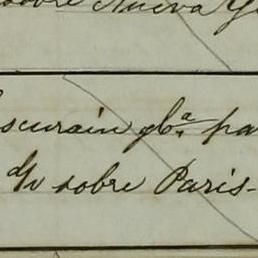 sobre Nueva Yo
scurain gb.ª pa
d/v sobre Paris-